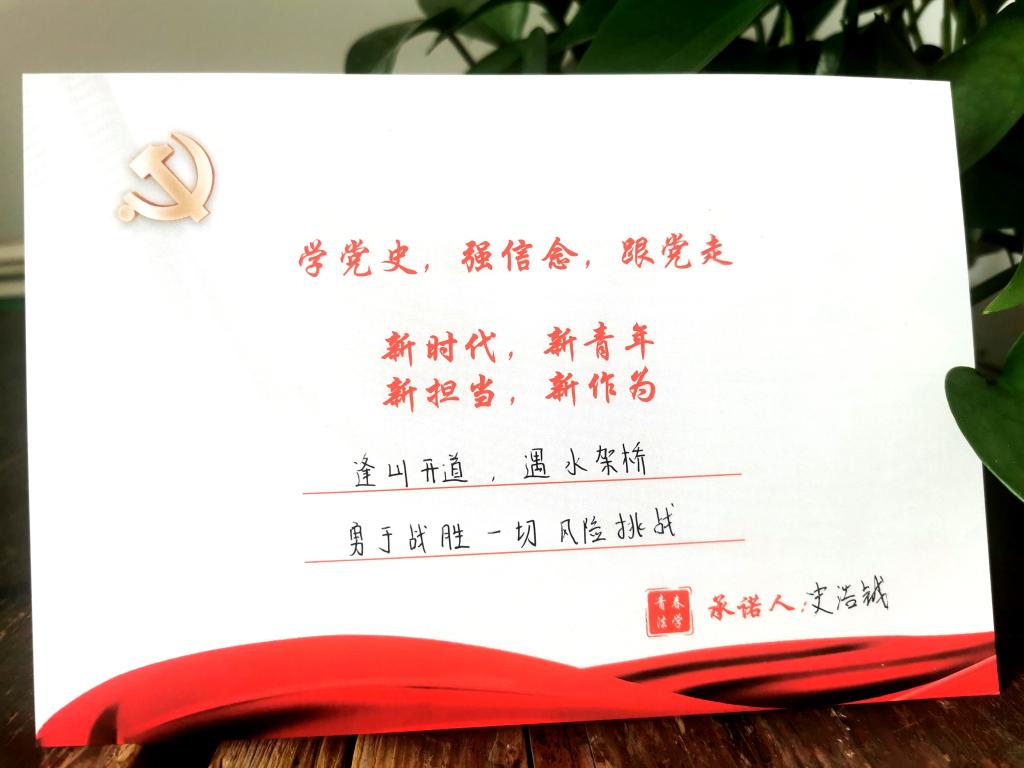 学党史，强信念，跟党走
新时代，新青年
新担当，新作为
逢山开道，遇水架桥
勇于战胜一切风险挑战
青春
法学
承诺人：史浩钺